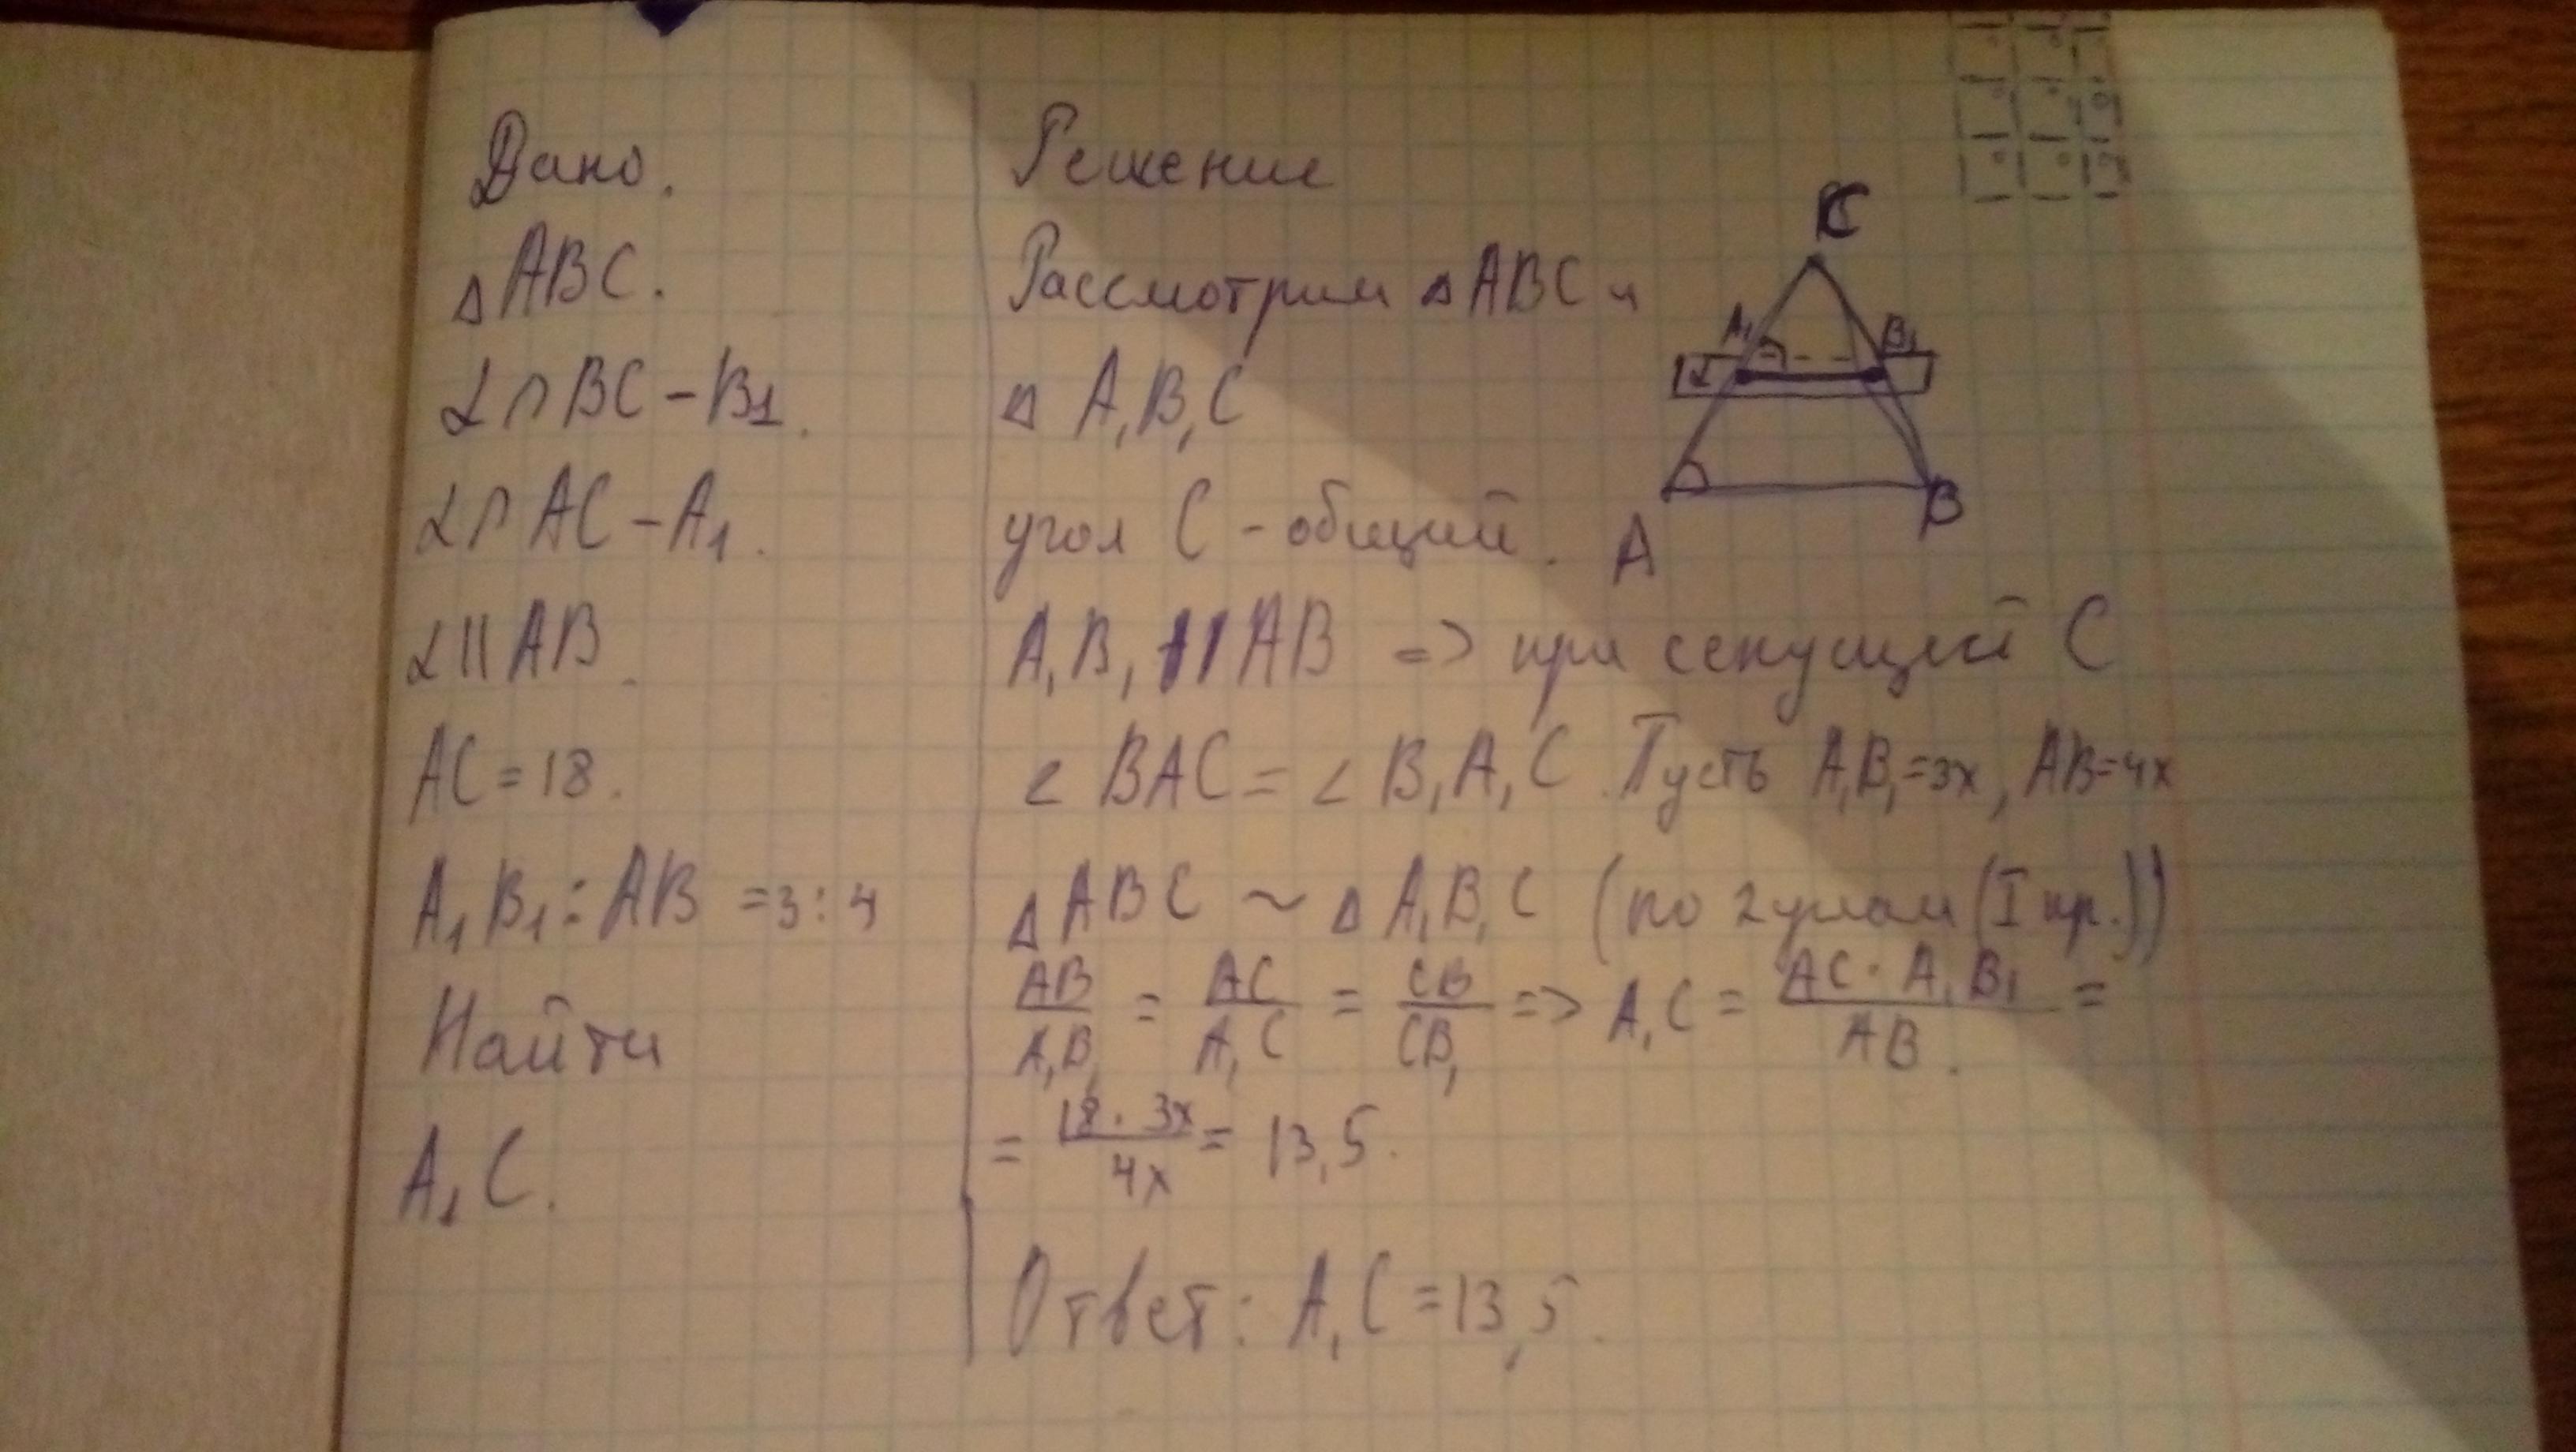 Дано.
△ABC.
α∩BC-B₁.
α∩AC-A₁.
α||AB.
AC=18.
A₁B₁:AB=3:4
Найти
A₁C.
Решение
Рассмотрим △ABC и
△A₁B₁C
угол C - общий.
A₁B₁||AB => при секущей C
<BAC=<B₁A₁C. Пусть A₁B₁=3x, AB=4x
△ABC ~ △A₁B₁C (по 2 углам (I пр.))
AB/A₁B₁ = AC/A₁C = CB/CB₁ => A₁C = AC·A₁B₁/AB. =
= 18·3x/4x = 13,5.
Ответ: A₁C=13,5.
C
A₁ B₁
α
A B